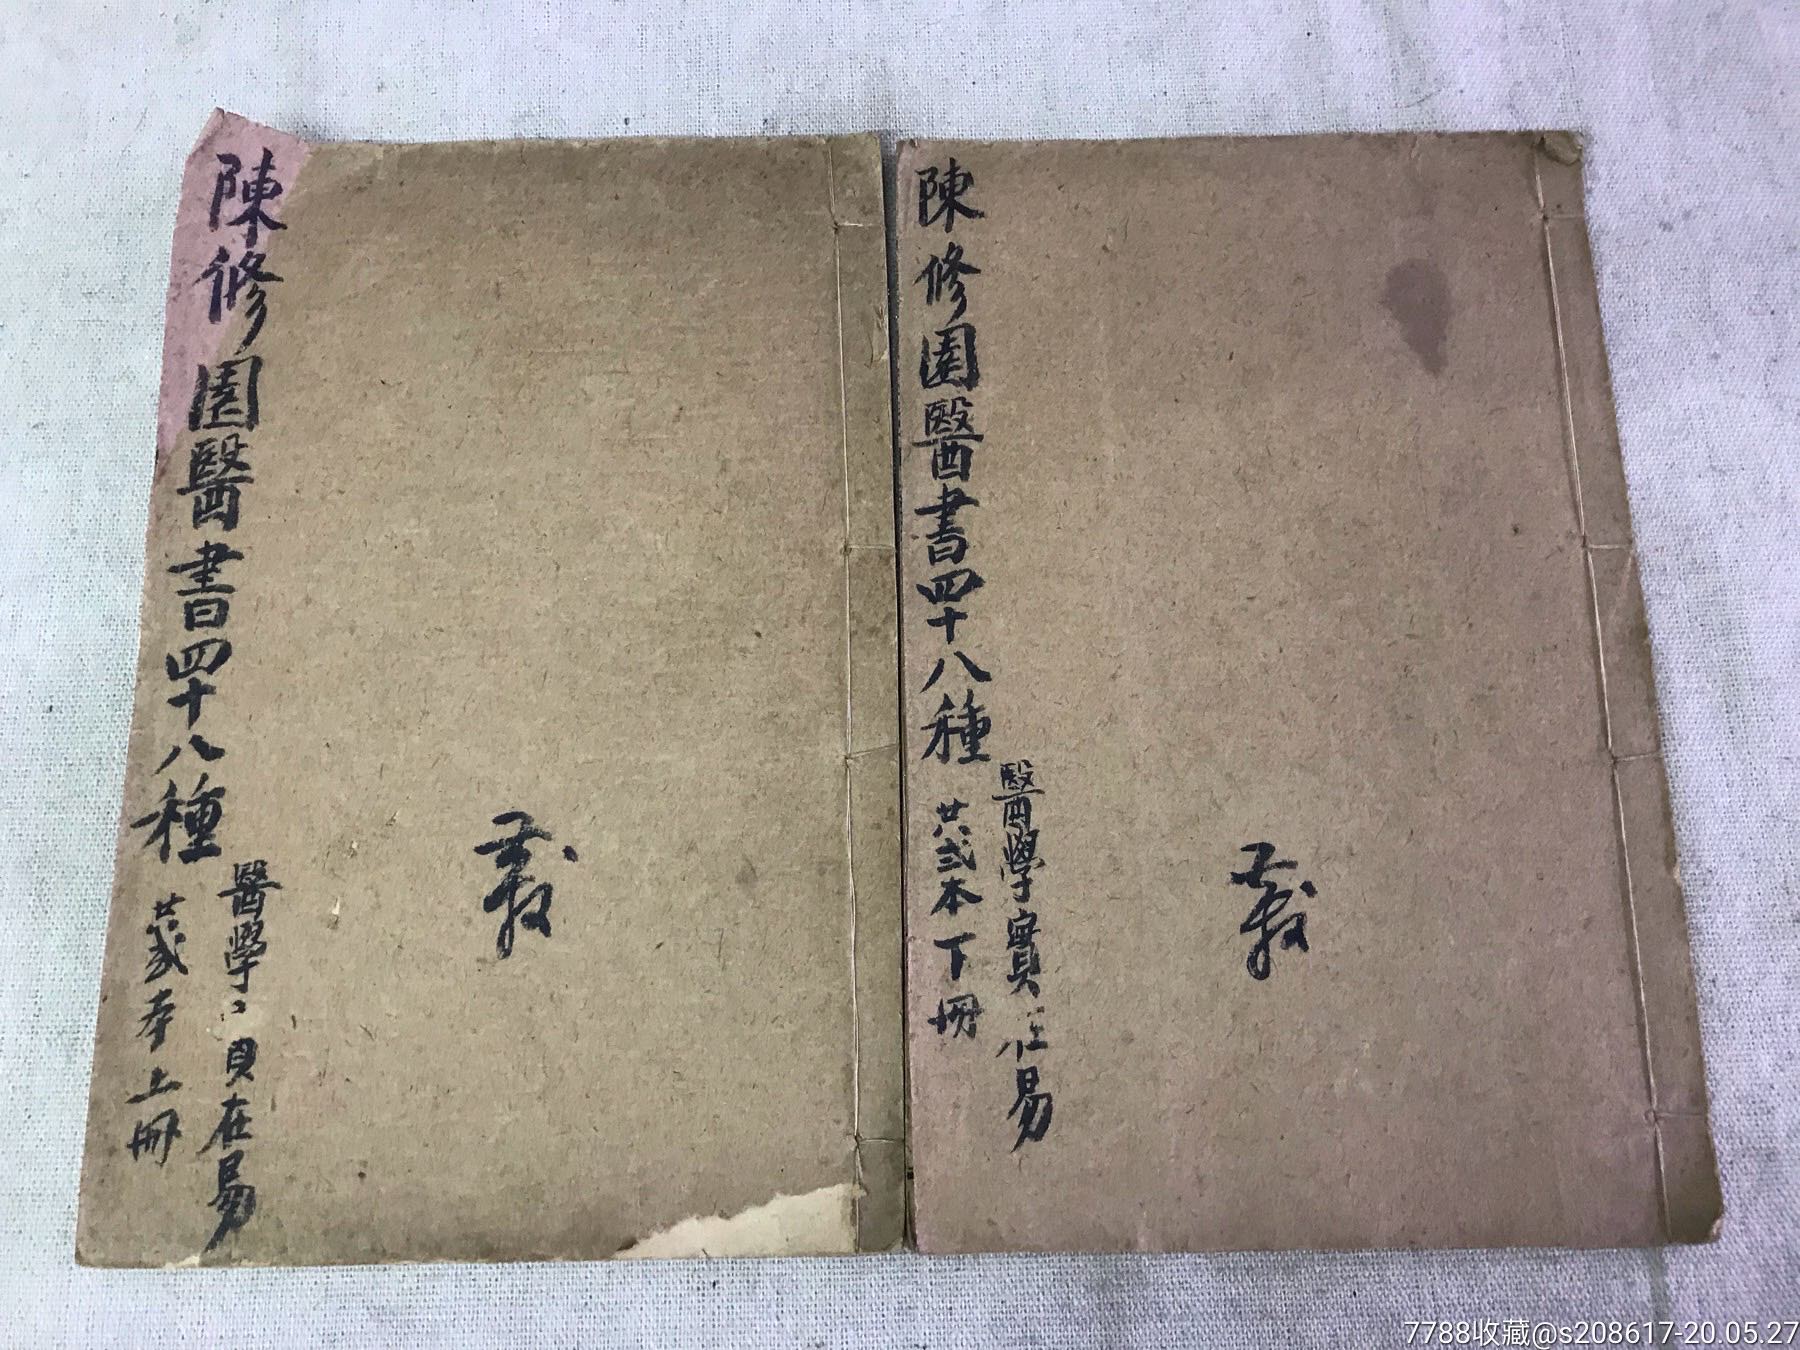 陳修園醫書四十八種
醫學 在易
上冊
陳修園醫書四十八種
醫學實在易
廿八弍本下冊
7788收藏@s208617-20.05.27